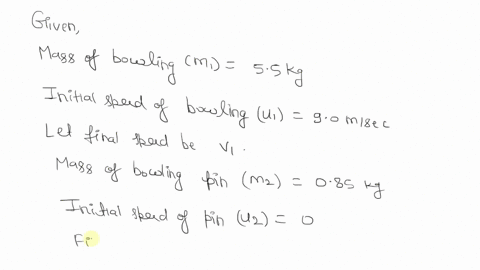 Given,
Mass of bowling (m₁) = 5.5 kg
Initial speed of bowling (u₁) = 9.0 m/sec
Let final speed be v₁.
Mass of bowling pin (m₂) = 0.85 kg
Initial speed of pin (u₂) = 0
Fi